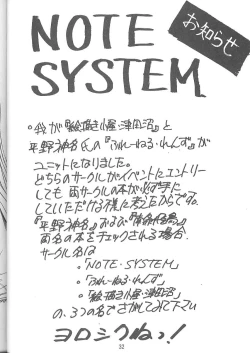 NOTE
SYSTEM
お知らせ
。我が『絵描き小屋・津田沼』と
平野神名氏の『ふれーねる・れんず』が
ユニットになりました。
どちらのサークルがイベントにエントリー
しても両サークルの本が必ず手に
していただける様に考えたからです。
『平野神名』および
両名の本をチェックされる場合、
サークル名は
・「NOTE・SYSTEM」
・「ふれーねる・れんず」
・「絵描き小屋・津田沼」
の、3つの名でさがしてみて下さい
ヨロシクねっ！
32